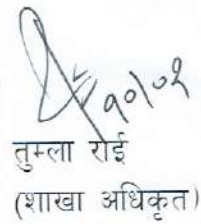 १०।०१
तुम्ला राई
(शाखा अधिकृत)